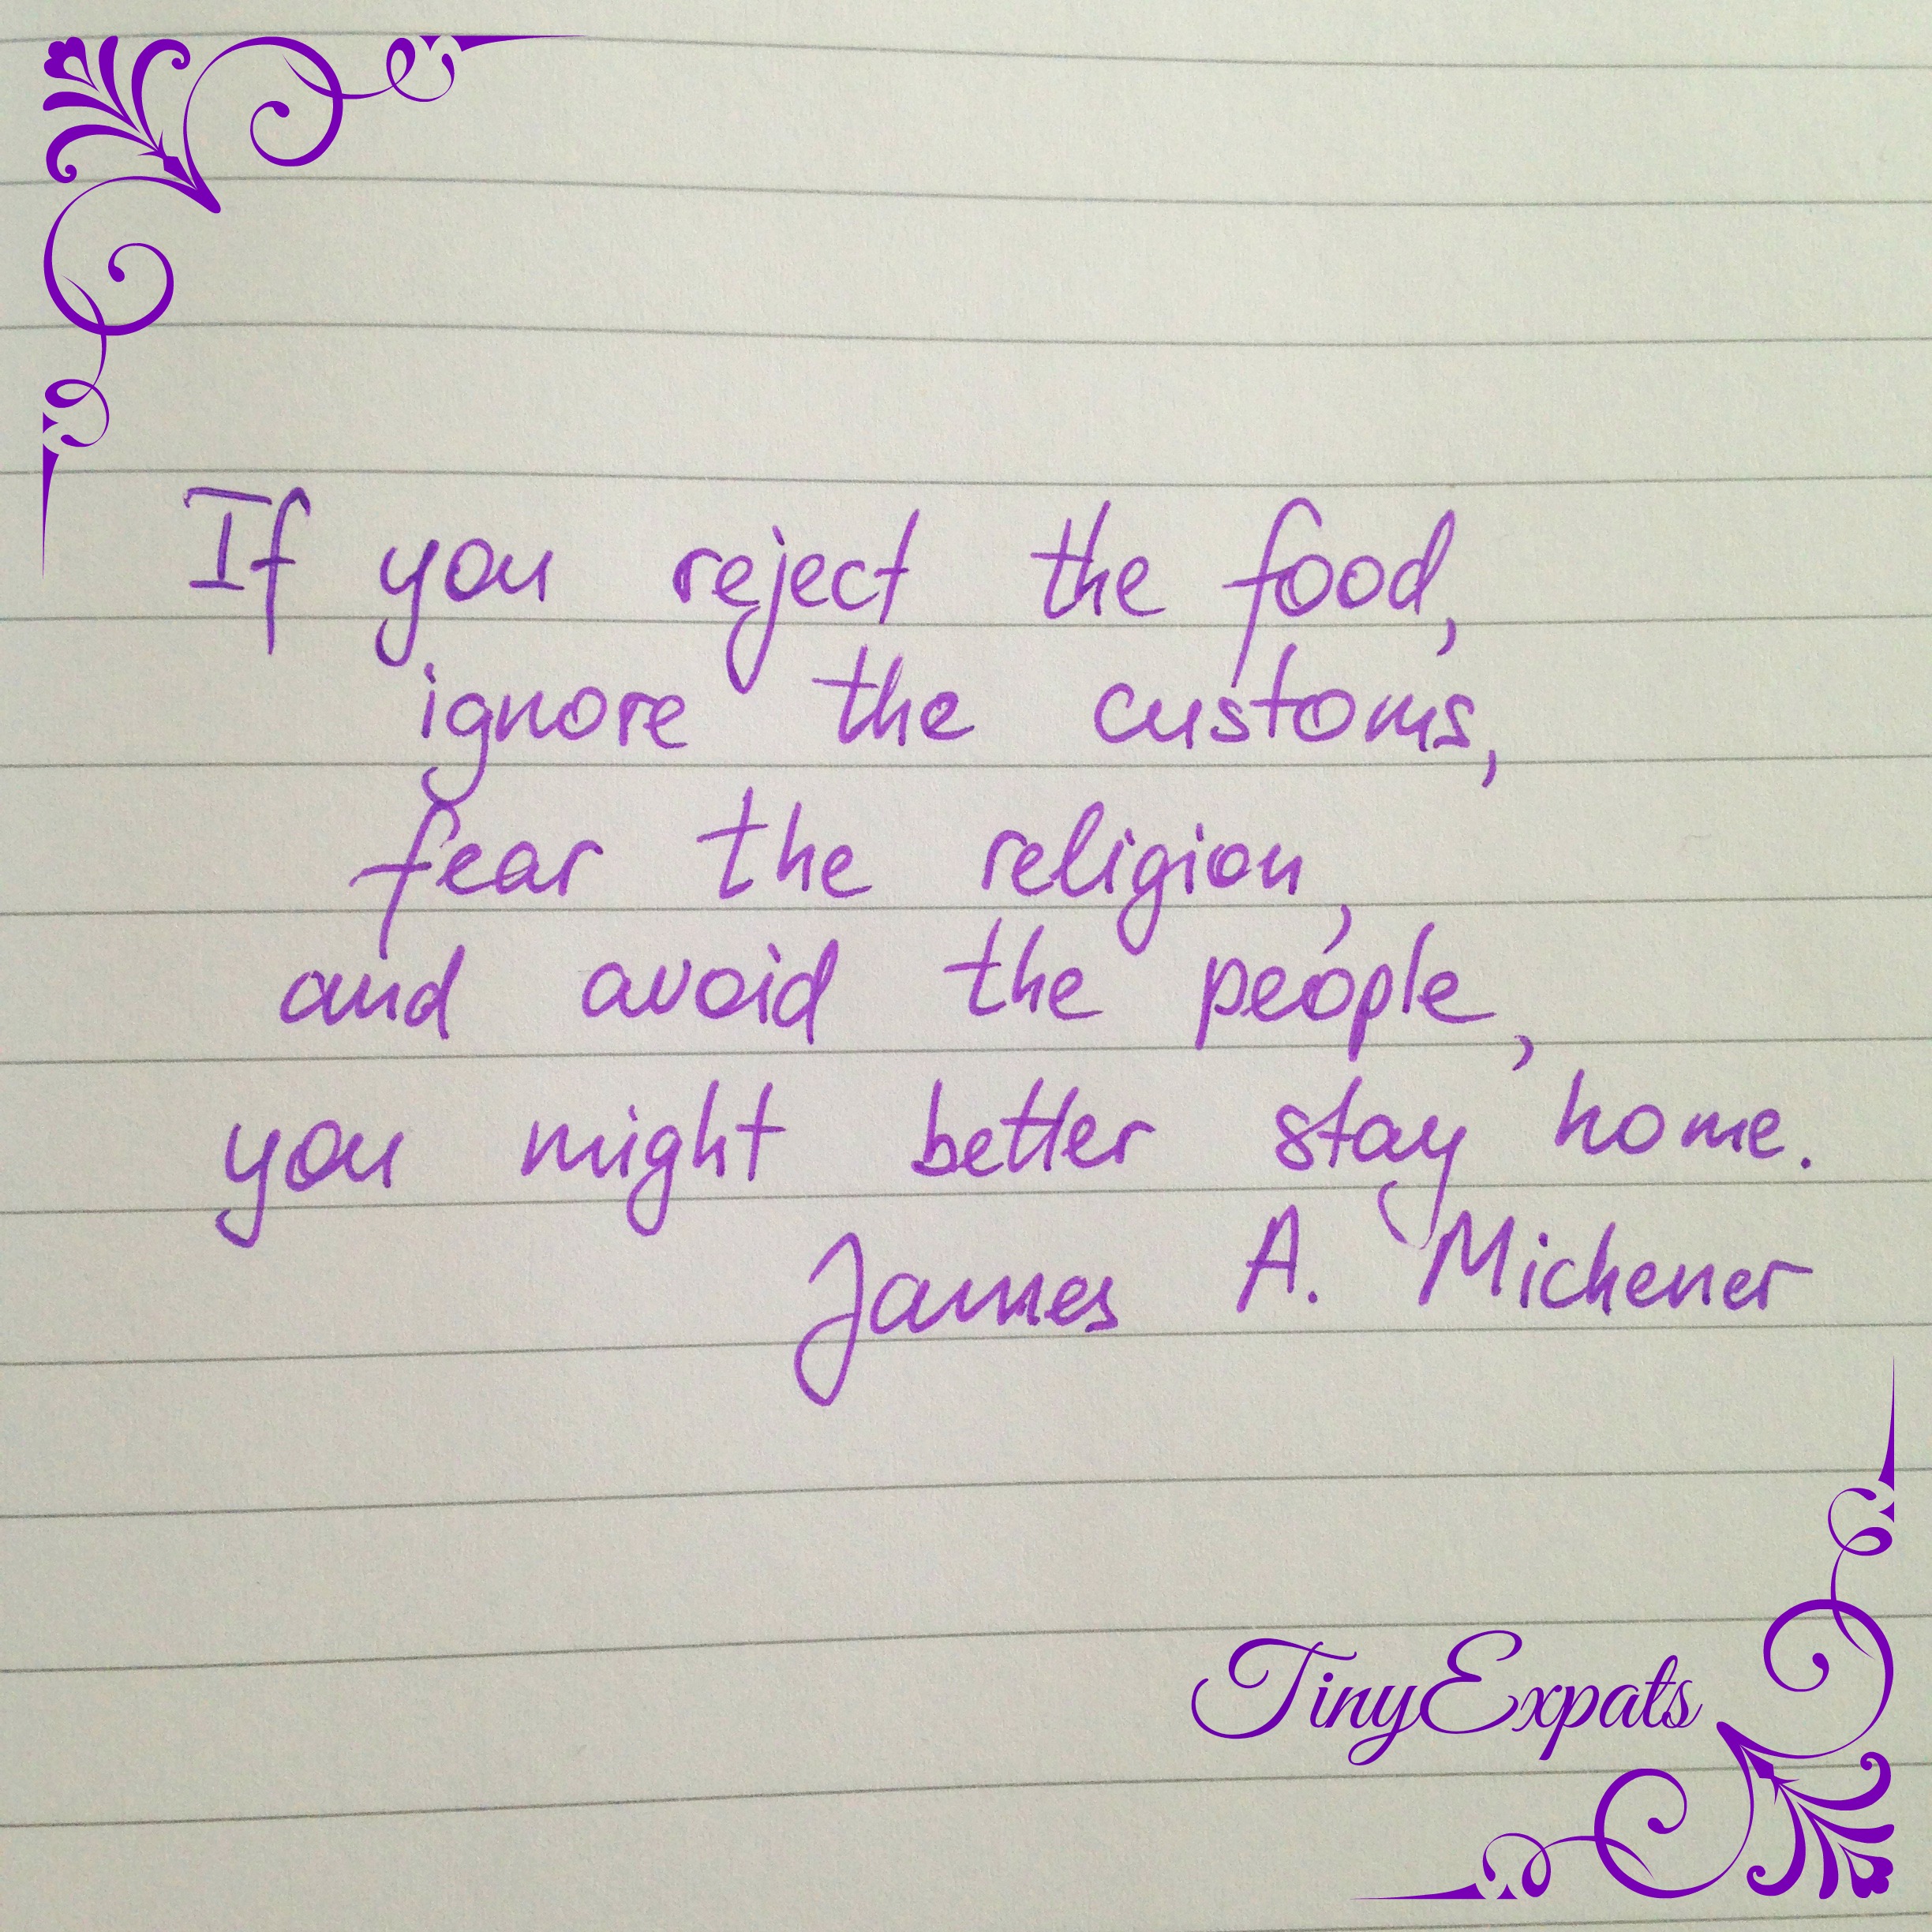 If you reject the food,
ignore the customs,
fear the religion,
and avoid the people,
you might better stay home.
James A. Michener
TinyExpats